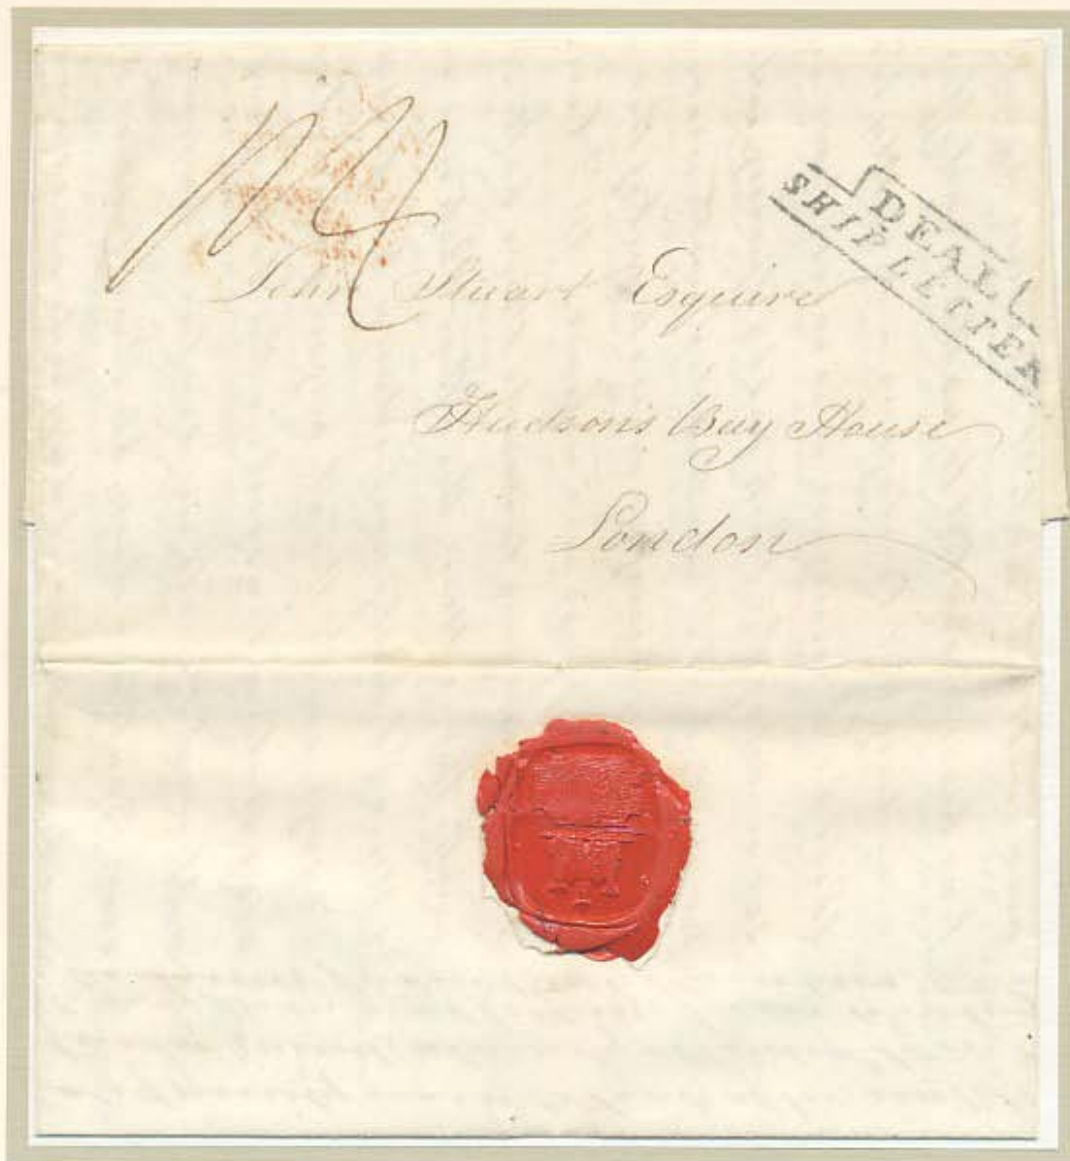 DEAL
SHIP LETTER
John Stuart Esquire
Hudson's Bay House
London